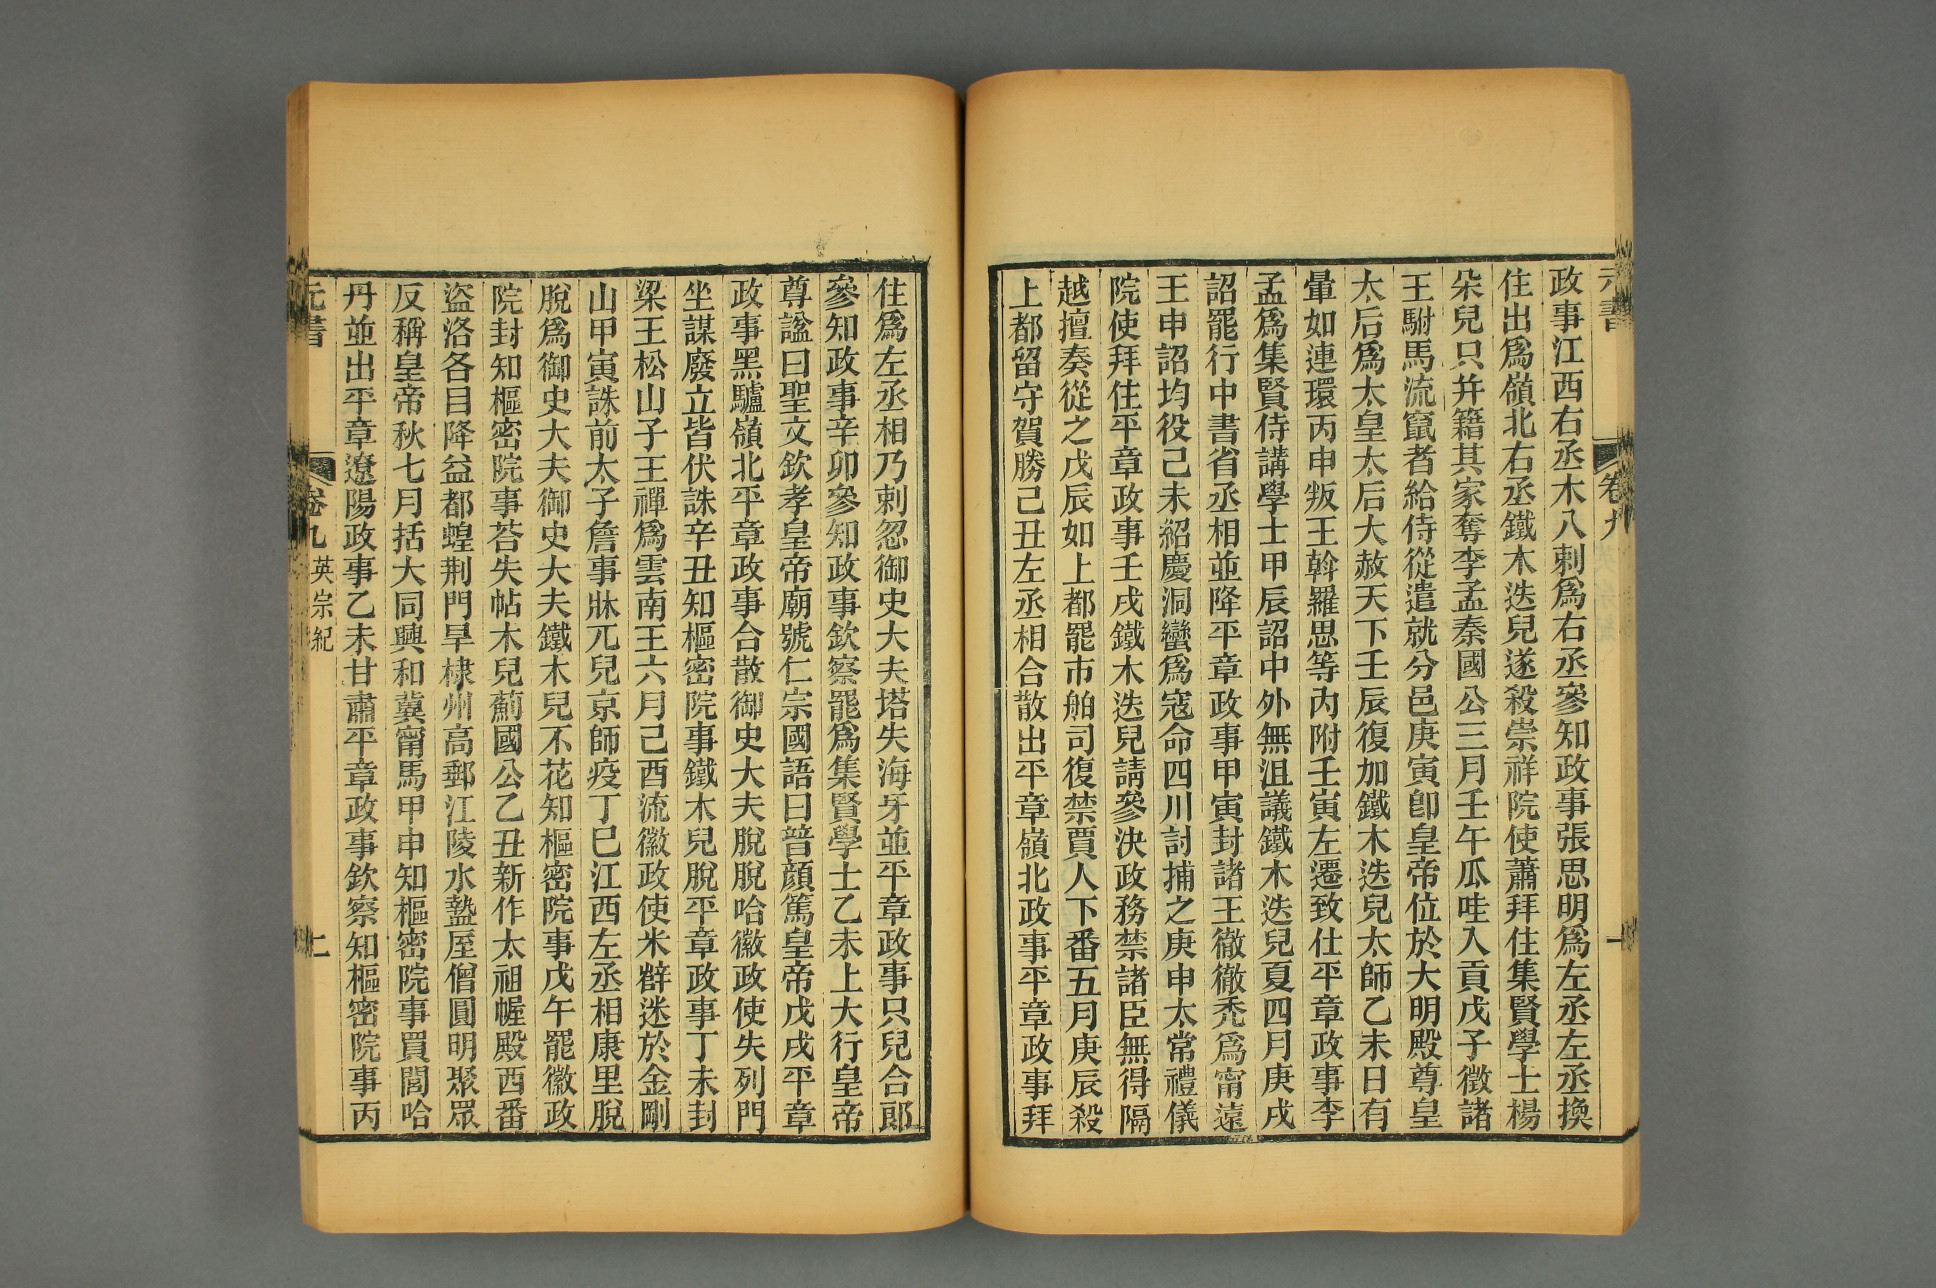 元書
卷九
一
政事江西右丞木八剌爲右丞參知政事張思明爲左丞左丞換
住出爲嶺北右丞鐵木迭兒遂殺崇祥院使蕭拜住集賢學士楊
朵兒只幷籍其家奪李孟秦國公三月壬午瓜哇入貢戊子徵諸
王駙馬流竄者給侍從遣就分邑庚寅卽皇帝位於大明殿尊皇
太后爲太皇太后大赦天下壬辰復加鐵木迭兒太師乙未日有
暈如連環丙申叛王斡羅思等內附壬寅左遷致仕平章政事李
孟爲集賢侍講學士甲辰詔中外無沮議鐵木迭兒夏四月庚戌
詔罷行中書省丞相並降平章政事甲寅封諸王徹徹禿爲甯遠
王申詔均役己未紹慶洞蠻爲寇命四川討捕之庚申太常禮儀
院使拜住平章政事壬戌鐵木迭兒請參決政務禁諸臣無得隔
越擅奏從之戊辰如上都罷市舶司復禁賈人下番五月庚辰殺
上都留守賀勝己丑左丞相合散出平章嶺北政事平章政事拜
住爲左丞相乃剌忽御史大夫塔失海牙並平章政事只兒合郎
參知政事辛卯參知政事欽察罷爲集賢學士乙未上大行皇帝
尊諡曰聖文欽孝皇帝廟號仁宗國語曰普顔篤皇帝戊戌平章
政事黑驢嶺北平章政事合散御史大夫脫脫哈徽政使失列門
坐謀廢立皆伏誅辛丑知樞密院事鐵木兒脫平章政事丁未封
梁王松山子王禪爲雲南王六月己酉流徽政使米薛迷於金剛
山甲寅誅前太子詹事牀兀兒京師疫丁巳江西左丞相康里脫
脫爲御史大夫御史大夫鐵木兒不花知樞密院事戊午罷徽政
院封知樞密院事荅失帖木兒薊國公乙丑新作太祖幄殿西番
盜洛各目降益都蝗荆門旱棣州高郵江陵水盩厔僧圓明聚眾
反稱皇帝秋七月括大同興和冀甯馬甲申知樞密院事買閭哈
丹並出平章遼陽政事乙未甘肅平章政事欽察知樞密院事丙
元書
卷九 英宗紀
二